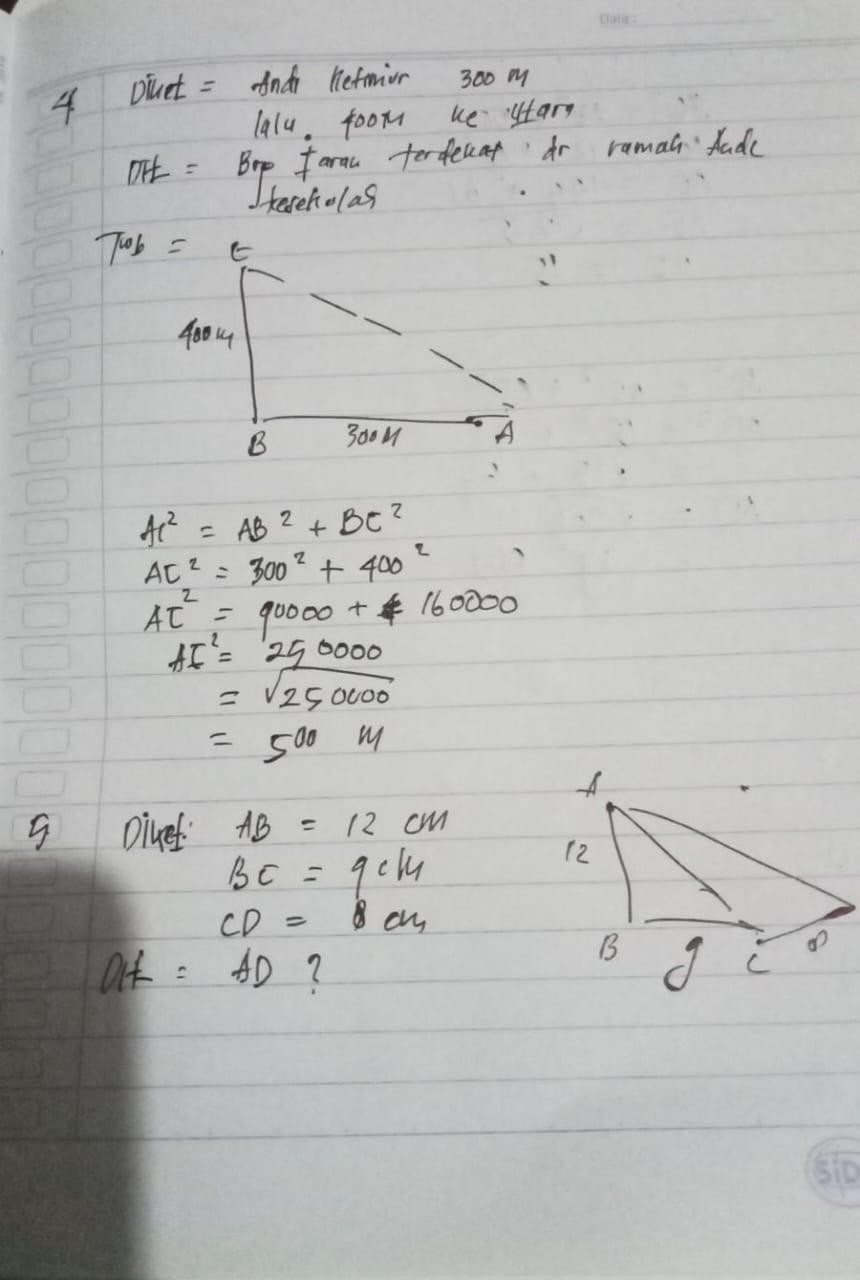 Data:
4 Diket = Andi Ketimur 300 M
lalu. 400M ke Utara
Dit = Brp Jarak terdekat dr rumah Ande
kesekolah
Jwb = C
400 M
B 300M A
AC² = AB² + BC²
AC² = 300² + 400²
AC² = 90000 + 160000
AC² = 250000
= √250000
= 500 M
5 Diket: AB = 12 cm
BC = 9 cm
CD = 8 cm
Dit = AD ?
A
12
B 9 C 8
SiD